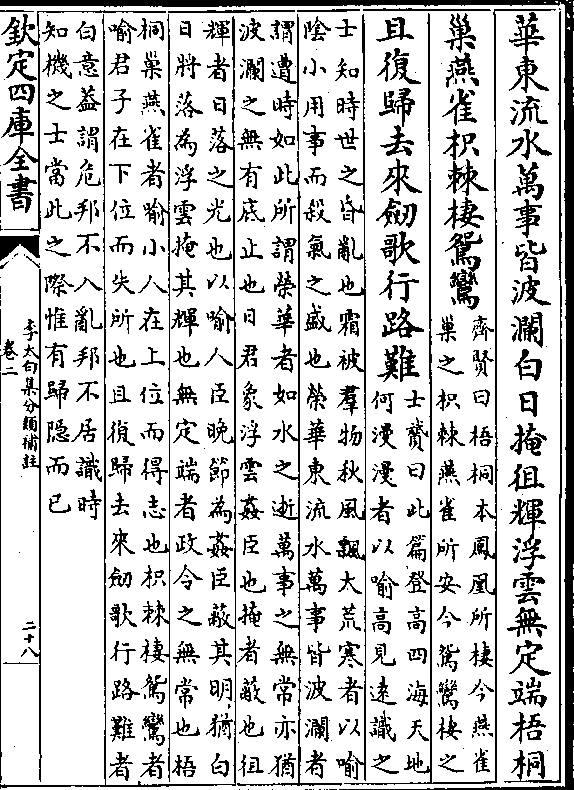 華東流水萬事皆波瀾白日掩徂輝浮雲無定端梧桐
巢燕雀枳棘棲鴛鸞
齊賢曰梧桐本鳳凰所棲今燕雀
巢之枳棘燕雀所安今鴛鸞棲之
且復歸去來劒歌行路難
士贇曰此篇登高四海天地
何漫漫者以喻高見遠識之
士知時世之昏亂也霜被羣物秋風飄大荒寒者以喻
陰小用事而殺氣之盛也榮華東流水萬事皆波瀾者
謂遭時如此所謂榮華者如水之逝萬事之無常亦猶
波瀾之無有底止也日君象浮雲姦臣也掩者蔽也徂
輝者日落之光也以喻人臣晚節為姦臣蔽其明猶白
日將落為浮雲掩其輝也無定端者政令之無常也梧
桐巢燕雀者喻小人在上位而得志也枳棘棲鴛鸞者
喻君子在下位而失所也且復歸去來劒歌行路難者
白意葢謂危邦不入亂邦不居識時
知機之士當此之際惟有歸隐而已
欽定四庫全書
李太白集分類補註
卷二
二十八